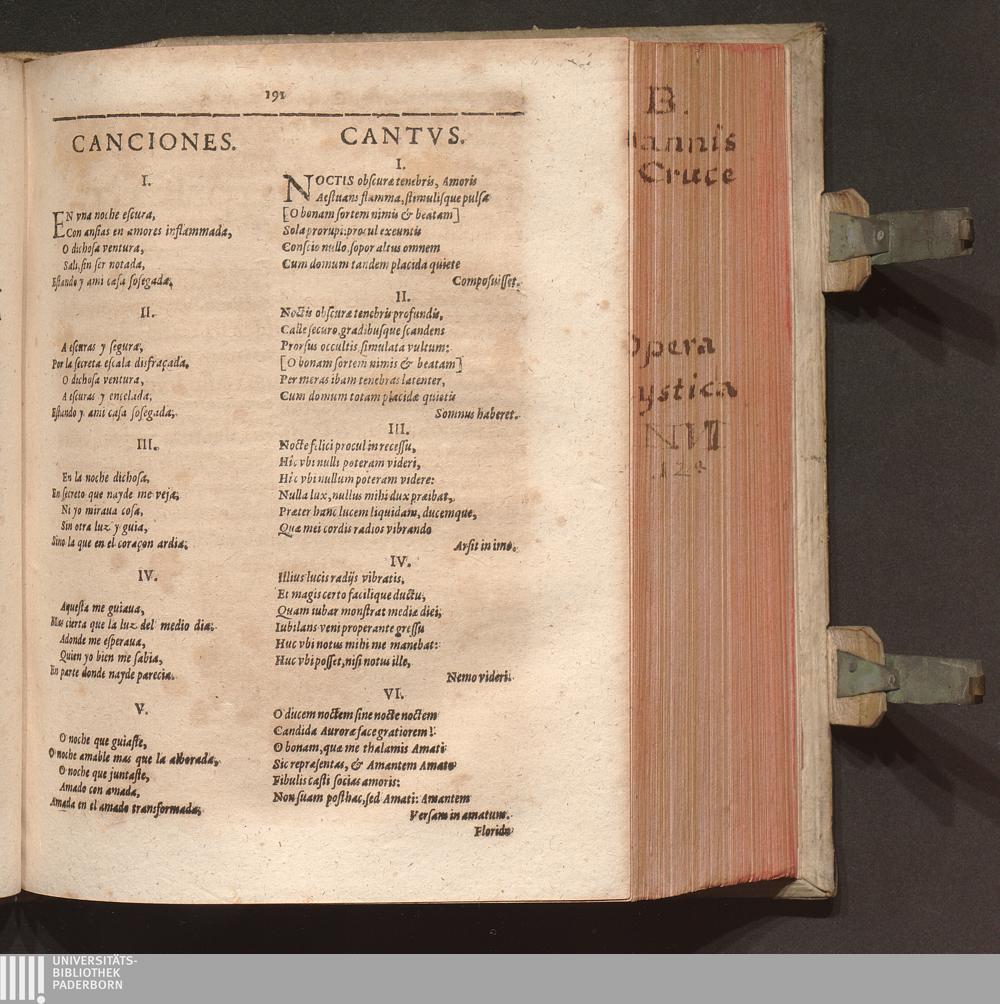 191
CANCIONES.
I.
EN vna noche escura,
Con ansias en amores inflammada,
O dichosa ventura,
Sali, sin ser notada,
Estando y ami casa sosegada.
II.
A escuras y segura,
Por la secreta escala disfraçada,
O dichosa ventura,
A escuras y encelada,
Estando y ami casa sosegada.
III.
En la noche dichosa,
En secreto que nayde me veja,
Ni yo miraua cosa,
Sin otra luz y guia,
Sino la que en el coraçon ardia.
IV.
Aquesta me guiaua,
Mas cierta que la luz del medio dia.
Adonde me esperaua,
Quien yo bien me sabia,
En parte donde nayde parecia.
V.
O noche que guiaste,
O noche amable mas que la alborada,
O noche que juntaste,
Amado con amada,
Amada en el amado transformada.
CANTVS.
I.
NOCTIS obscuræ tenebris, Amoris
Aestuans flamma, stimulisque pulsæ
[O bonam sortem nimis & beatam]
Sola prorupi: procul exeuntis
Conscio nullo, sopor altus omnem
Cum domum tandem placida quiete
Composuisset.
II.
Noctis obscuræ tenebris profundis,
Calle securo, gradibusque scandens
Prorsus occultis, simulata vultum:
[O bonam sortem nimis & beatam]
Per meras ibam tenebras latenter,
Cum domum totam placidæ quietis
Somnus haberet.
III.
Nocte felici procul in recessu,
Hic vbi nulli poteram videri,
Hic vbi nullum poteram videre:
Nulla lux, nullus mihi dux præibat,
Præter hanc lucem liquidam, ducemque,
Quæ mei cordis radios vibrando
Arsit in imo.
IV.
Illius lucis radijs vibratis,
Et magis certo facilique ductu,
Quam iubar monstrat mediæ diei,
Iubilans veni properante gressu
Huc vbi notus mihi me manebat:
Huc vbi posset, nisi notus ille,
Nemo videri.
VI.
O ducem noctem sine nocte noctem
Candida Auroræ face gratiorem!
O bonam, quæ me thalamis Amati
Sic repræsentas, & Amantem Amato
Fibulis casti socias amoris:
Non suam posthac, sed Amati: Amantem
Versam in amatum.
Florida
B.
annis
Cruce
pera
ystica
124
UNIVERSITÄTS-
BIBLIOTHEK
PADERBORN